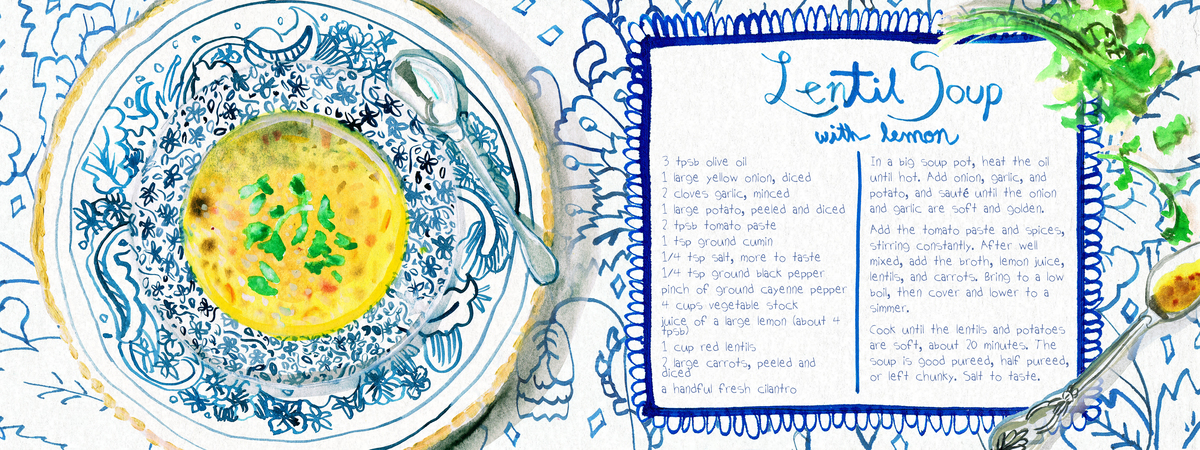 Lentil Soup
with lemon
3 tpsb olive oil
1 large yellow onion, diced
2 cloves garlic, minced
1 large potato, peeled and diced
2 tpsb tomato paste
1 tsp ground cumin
1/4 tsp salt, more to taste
1/4 tsp ground black pepper
pinch of ground cayenne pepper
4 cups vegetable stock
juice of a large lemon (about 4
tpsb)
1 cup red lentils
2 large carrots, peeled and
diced
a handful fresh cilantro
In a big soup pot, heat the oil
until hot. Add onion, garlic, and
potato, and sauté until the onion
and garlic are soft and golden.
Add the tomato paste and spices,
stirring constantly. After well
mixed, add the broth, lemon juice,
lentils, and carrots. Bring to a low
boil, then cover and lower to a
simmer.
Cook until the lentils and potatoes
are soft, about 20 minutes. The
soup is good pureed, half pureed,
or left chunky. Salt to taste.